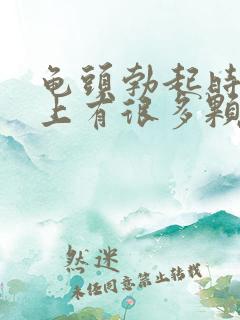 龟頭勃起時
上有很多顆
然迷
未任同意禁止转载